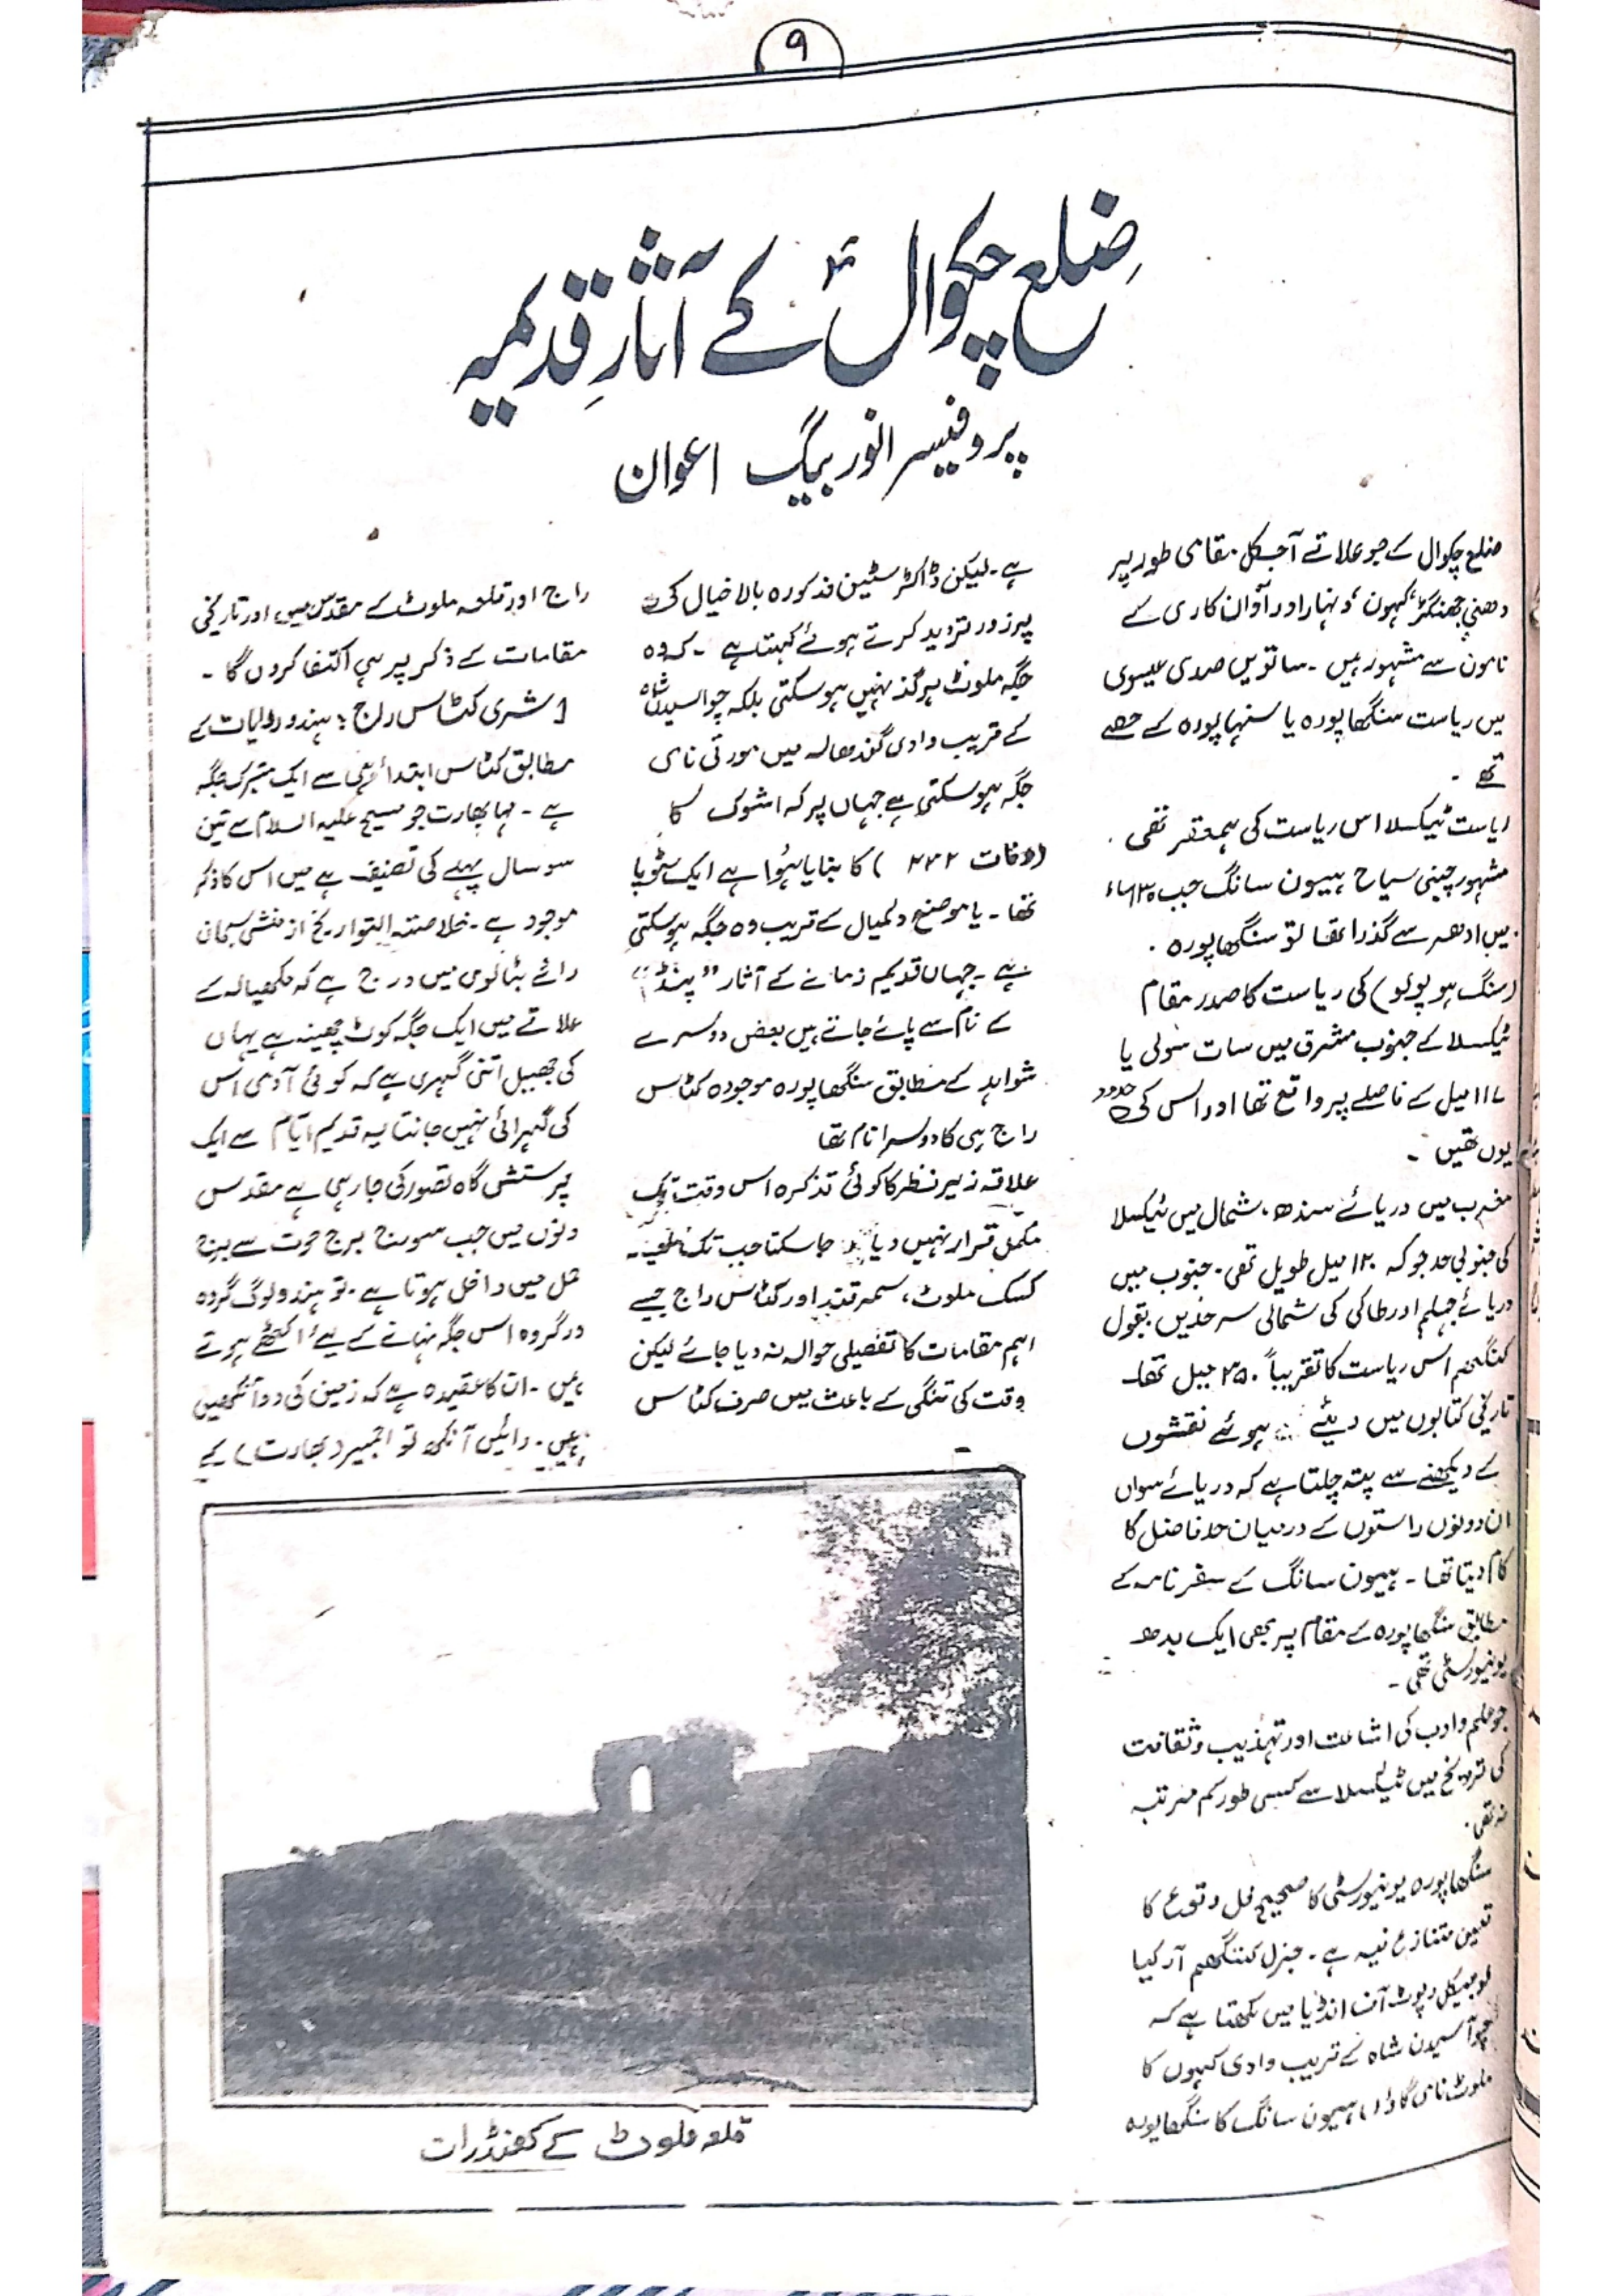 ۹
ضلع چکوال کے آثارِ قدیمہ
پروفیسر انور بیگ اعوان
ضلع چکوال کے جو علاقے آجکل مقامی طور پر
دھنی، جھنگڑ، کہون، ونہار اور آوان کاری کے
ناموں سے مشہور ہیں۔ ساتویں صدی عیسوی
میں ریاست سنگھاپورہ یا سنہاپورہ کے حصے
تھے۔
ریاست ٹیکسلا اس ریاست کی ہمعصر تھی۔
مشہور چینی سیاح ہیون سانگ جب ۶۳۰ء
میں ادھر سے گذرا تھا تو سنگھاپورہ۔
(سنگ ہو پولو) کی ریاست کا صدر مقام
ٹیکسلا کے جنوب مشرق میں سات سولی یا
۱۱۷ میل کے فاصلے پر واقع تھا اور اس کی حدود
یوں تھیں۔
مغرب میں دریائے سندھ، شمال میں ٹیکسلا
کی جنوبی حد جو کہ ۱۲۰ میل طویل تھی۔ جنوب میں
دریائے جہلم اور طاکی کی شمالی سرحدیں بقول
کننگھم اس ریاست کا تقریباً ۲۵۰ میل تھا۔
تاریخی کتابوں میں دیئے ہوئے نقشوں
کے دیکھنے سے پتہ چلتا ہے کہ دریائے سواں
ان دونوں راستوں کے درمیان حد فاضل کا
کام دیتا تھا۔ ہیون سانگ کے سفر نامہ کے
مطابق سنگھاپورہ کے مقام پر بھی ایک بدھ
یونیورسٹی تھی۔
جو علم و ادب کی اشاعت اور تہذیب و ثقافت
کی ترویج میں ٹیکسلا سے کسی طور کم مرتبہ
نہ تھی۔
سنگھاپورہ یونیورسٹی کا صحیح محل وقوع کا
تعین متنازع فیہ ہے۔ جنرل کننگھم آرکیا
لوجیکل رپوٹ آف انڈیا میں لکھتا ہے کہ
چوآ سیدن شاہ کے قریب وادی کہوں کا
ملوٹ نامی گاؤں ہیون سانگ کا سنگھاپورہ
ہے۔ لیکن ڈاکٹر سٹین مذکورہ بالا خیال کی
پرزور تردید کرتے ہوئے کہتا ہے۔ کہ وہ
جگہ ملوٹ ہرگز نہیں ہوسکتی بلکہ چواسیدن شاہ
کے قریب وادی گندھالہ میں مورتی نامی
جگہ ہوسکتی ہے جہاں پر کہ اشوک کا
(وفات ۲۳۲) کا بنایا ہوا ہے ایک سٹوپا
تھا۔ یا موضع دلمیال کے قریب وہ جگہ ہوسکتی
ہے۔ جہاں قدیم زمانے کے آثار "پنڈ"
کے نام سے پائے جاتے ہیں بعض دوسرے
شواہد کے مطابق سنگھاپورہ موجودہ کٹاس
راج ہی کا دوسرا نام تھا
علاقہ زیر نظر کا کوئی تذکرہ اس وقت تک
مکمل قرار نہیں دیا جاسکتا جب تک
کسک ملوٹ، سمرقند اور کٹاس راج جیسے
اہم مقامات کا تفصیلی حوالہ نہ دیا جائے لیکن
وقت کی تنگی کے باعث میں صرف کٹاس
راج اور قلعہ ملوٹ کے مقدس میں اور تاریخی
مقامات کے ذکر پر ہی اکتفا کروں گا۔
شری کٹاس راج: ہندو روایات کے
مطابق کٹاس ابتدا ہی سے ایک متبرک جگہ
ہے۔ مہا بھارت جو مسیح علیہ السلام سے تین
سو سال پہلے کی تصنیف ہے میں اس کا ذکر
موجود ہے۔ خلاصتہ التواریخ از منشی سبحان
رائے بٹالوی میں درج ہے کہ مکھیالہ کے
علاقے میں ایک جگہ کوٹ چھینہ ہے یہاں
کی جھیل اتنی گہری ہے کہ کوئی آدمی اس
کی گہرائی نہیں جانتا یہ قدیم ایام سے ایک
پرستش گاہ تصور کی جارہی ہے مقدس
دنوں میں جب سورج برج حوت سے برج
حمل میں داخل ہوتا ہے۔ تو ہندو لوگ گروہ
در گروہ اس جگہ نہانے کے لیے اکٹھے ہوتے
ہیں۔ ان کا عقیدہ ہے کہ زمین کی دو آنکھیں
ہیں۔ دائیں آنکھ تو اجمیر (بھارت) کے
قلعہ ملوٹ کے کھنڈرات